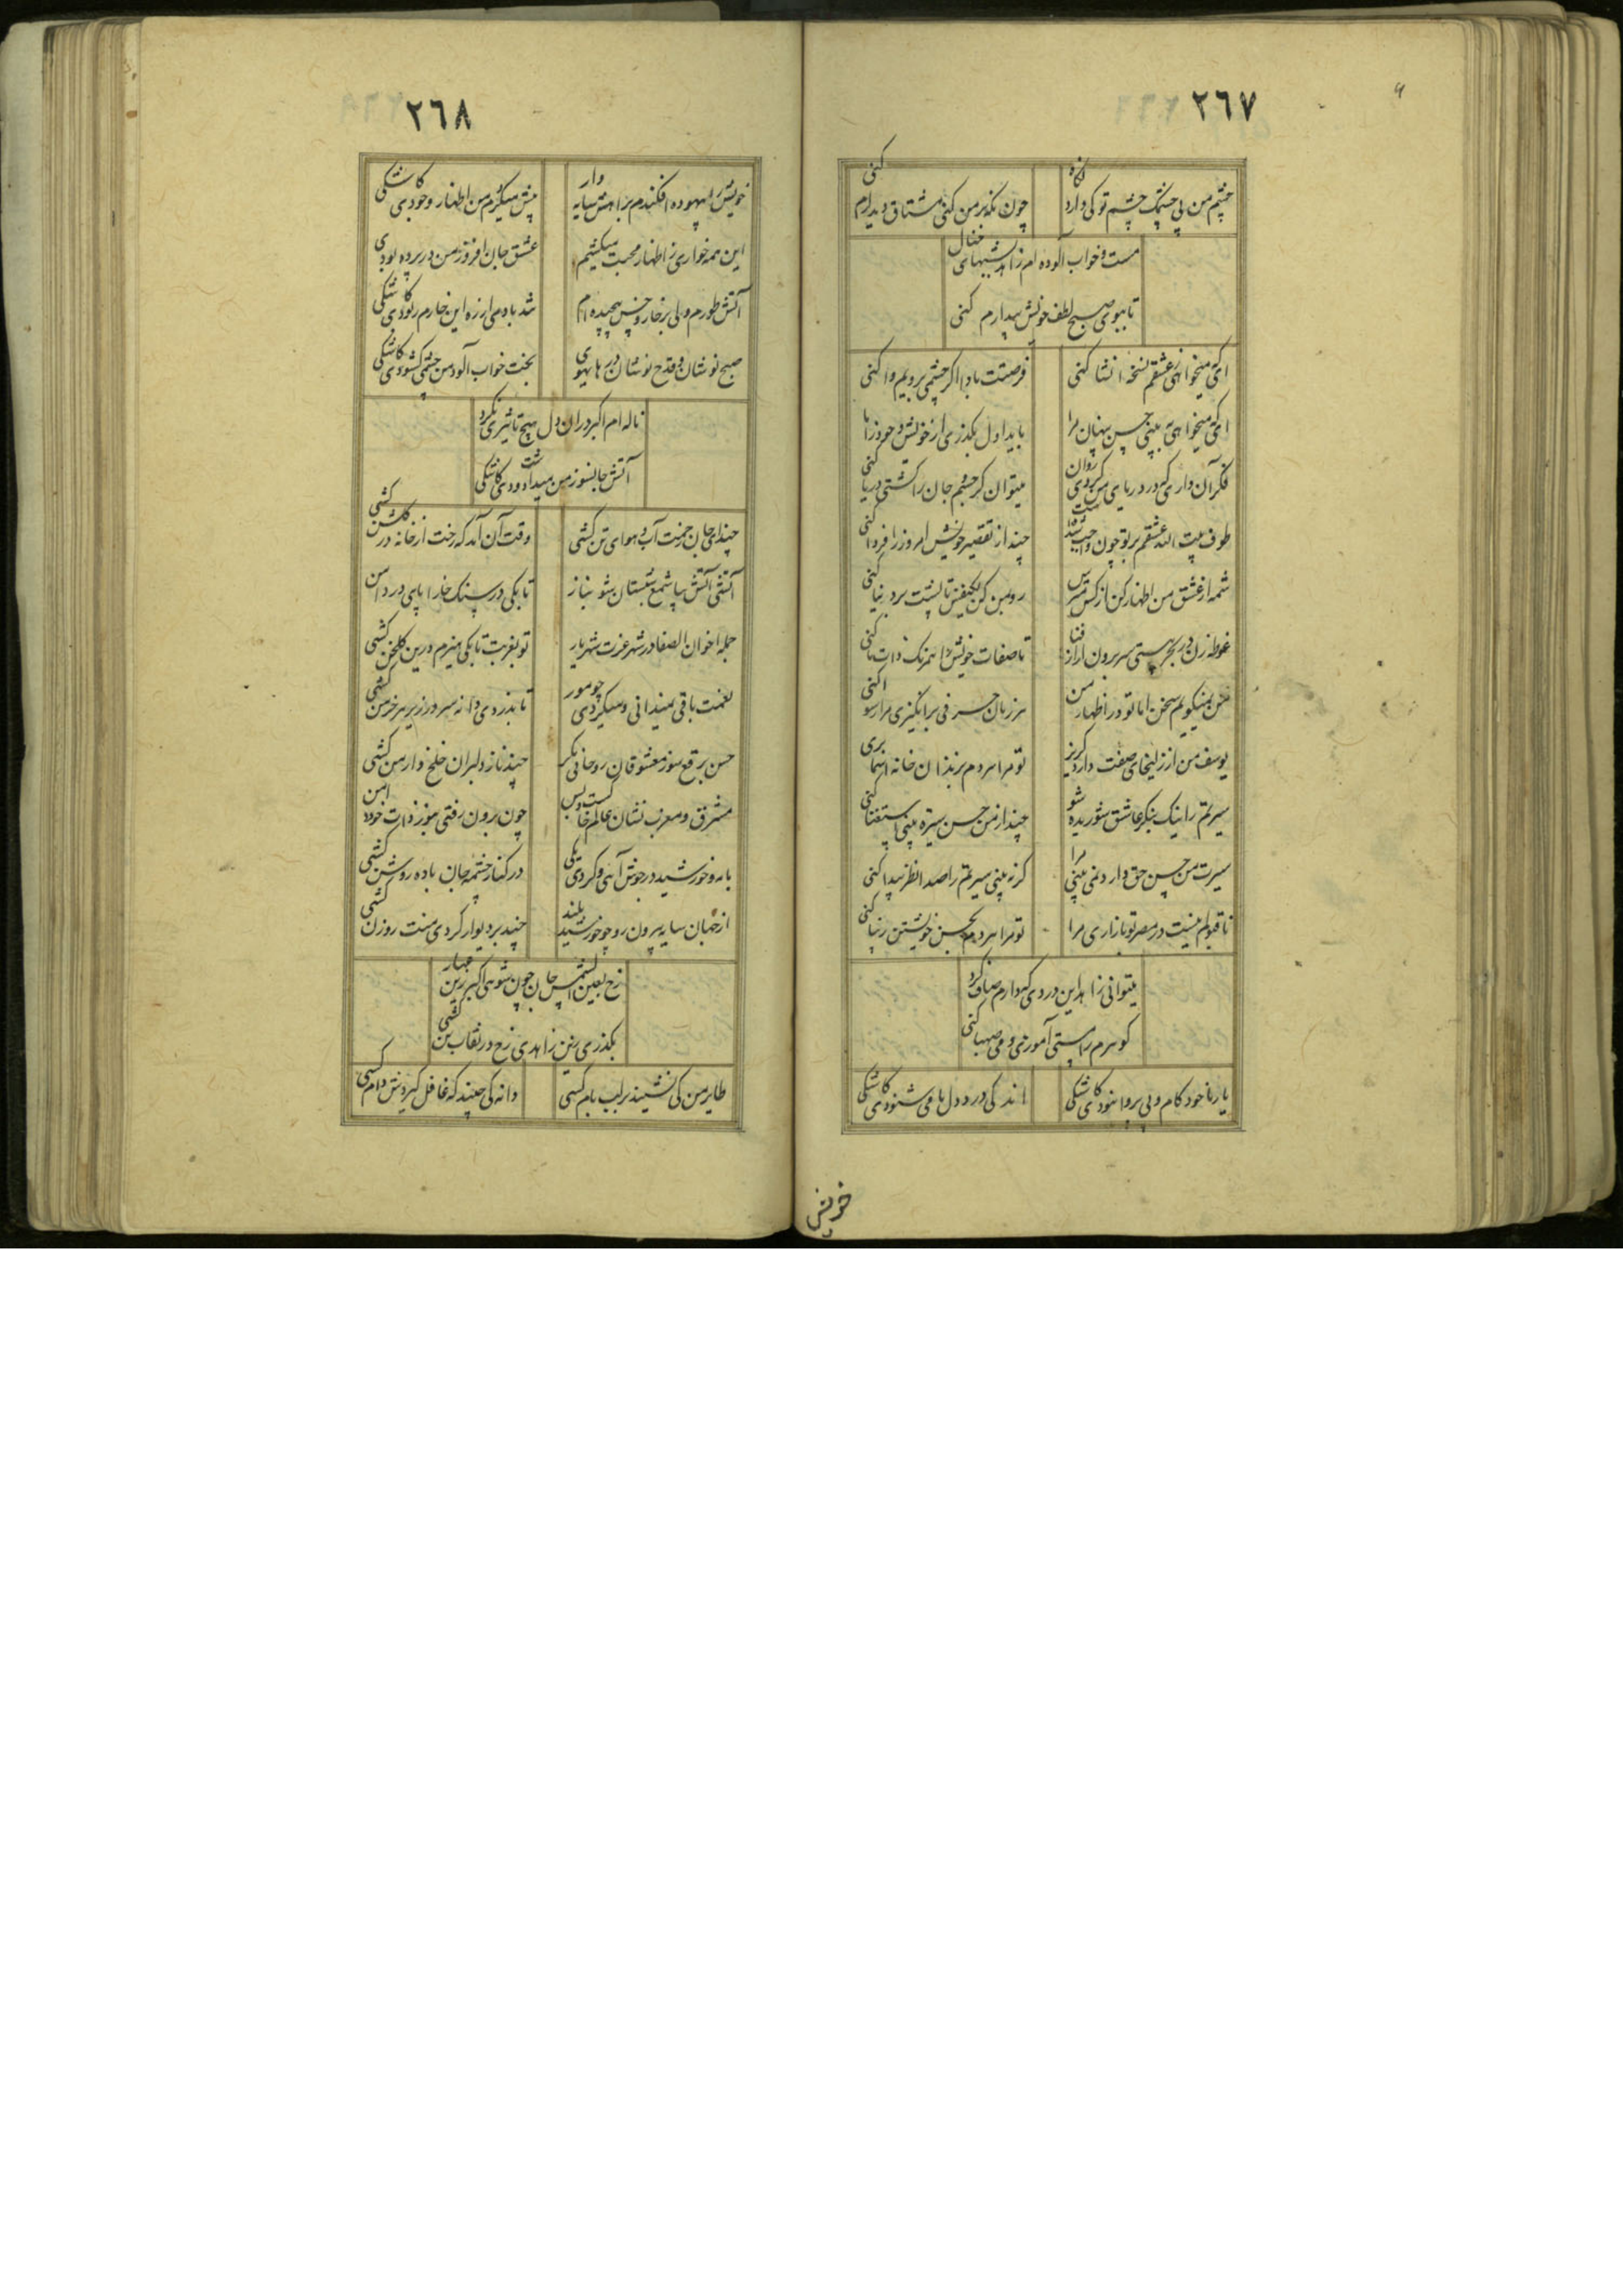 ٢٦٧
چشم من بی چشمک چشم تو کی دارد نگاه
چون نگه بر من کنی مشتاق دیدارم کنی
مست و خواب آلوده ام زاهد شبهای خیال
تا ببوی صبح لطف خویش بیدارم کنی
ایکه میخواهی ز عشقم نسخهٔ انشا کنی
فرصتت بادا اگر چشمی برویم وا کنی
ایکه میخواهی به بینی حسن پنهان مرا
باید اول بگذری از خویش و
فکر آن داری که در دریای من کردی روان
میتوان گر جسم جان را کشتی دریا کنی
طوف بیت الله عشقم بر تو چون واجب شد است
چند از تقصیر خویش امروز را فردا کنی
شمه از عشق من اظهار کن از کس مترس
رو بمن کن یکنفس تا پشت بر دنیا کنی
غوطه زن در بحر هستی سر برون آر از فنا
تا صفات خویش را همرنگ ذات ما کنی
من نمیگویم سخن اما تو در اظهار من
هر زبان حرفی برانگیزی مرا رسوا کنی
یوسف من از زلیخای صفت دارد گریز
تو مرا هر دم بزندان خانه اسما بری
سیرتم را نیک بنگر عاشق شوریده شو
چند از من حسن سیره بینی استغنا کنی
سیرت من حسن حق دارد نمی بینی مرا
گر نه بینی سیرتم را صد نظر پیدا کنی
ناقبولم نیست در مصر تو بازاری مرا
تو مرا هر دم بحسن خویشتن زیبا کنی
میتوانی زاهد این دردی که دارم صاف کرد
گوهرم راستی آموزی و می صهبا کنی
یار با خود کام و بی پروا نبودی کاشکی
اندکی درد دل ما می شنودی کاشکی
خویش
٢٦٨
خویش را بیهوده افکندم براهش سایه وار
پیش میگیرم من اظهار وجودی کاشکی
این همه خواری ز اظهار محبت میکشیم
عشق جان افروز من در پرده بودی کاشکی
آتش طورم ولی بر خار و خس پیچیده ام
شد باد می از ره این خارم ربودی کاشکی
صبح نوشان و قدح نوشان در هایهوی
بخت خواب آلود من چشمی گشودی کاشکی
ناله ام اکبر در آن دل هیچ تاثیری نکرد
آتش جانسوز من میداشت دودی کاشکی
چند ای جان زحمت آب و هوای تن کشی
وقت آن آمد که رخت از خانه در گلشن کشی
آتشی آتش بیا شمع شبستان شو بناز
تا بکی در سنک خارا پای در دامن کشی
جمله اخوان الصفا در شهر عزت شهریار
تو بغربت تا بکی هیزم درین گلخن کشی
نعمت باقی نمیدانی و میگردی چو مور
تا بدزدی دانه سر در زیر هر خرمن کشی
حسن برقع سوز معشوقان روحانی نگر
چند ناز دلبران خلخ و ارمن کشی
مشرق و مغرب نشان عالم خاکست و بس
چون برون رفتی هنوز ذات خود
با مه و خورشید در جوش آئی و گردی یکی
در کنار چشمه جان باده روشن کشی
از میان سایه بیرون رو چو خورشید بلند
چند بر دیوار کردی منت روزن کشی
رخ بعین الشمس جان چون شوی اکبر زین جهار
بگذری زین زاهدی رخ در نقاب تن کشی
طایر من کی نشیند بر لب بام کسی
دانه کی چیند که غافل گیردش دام کسی